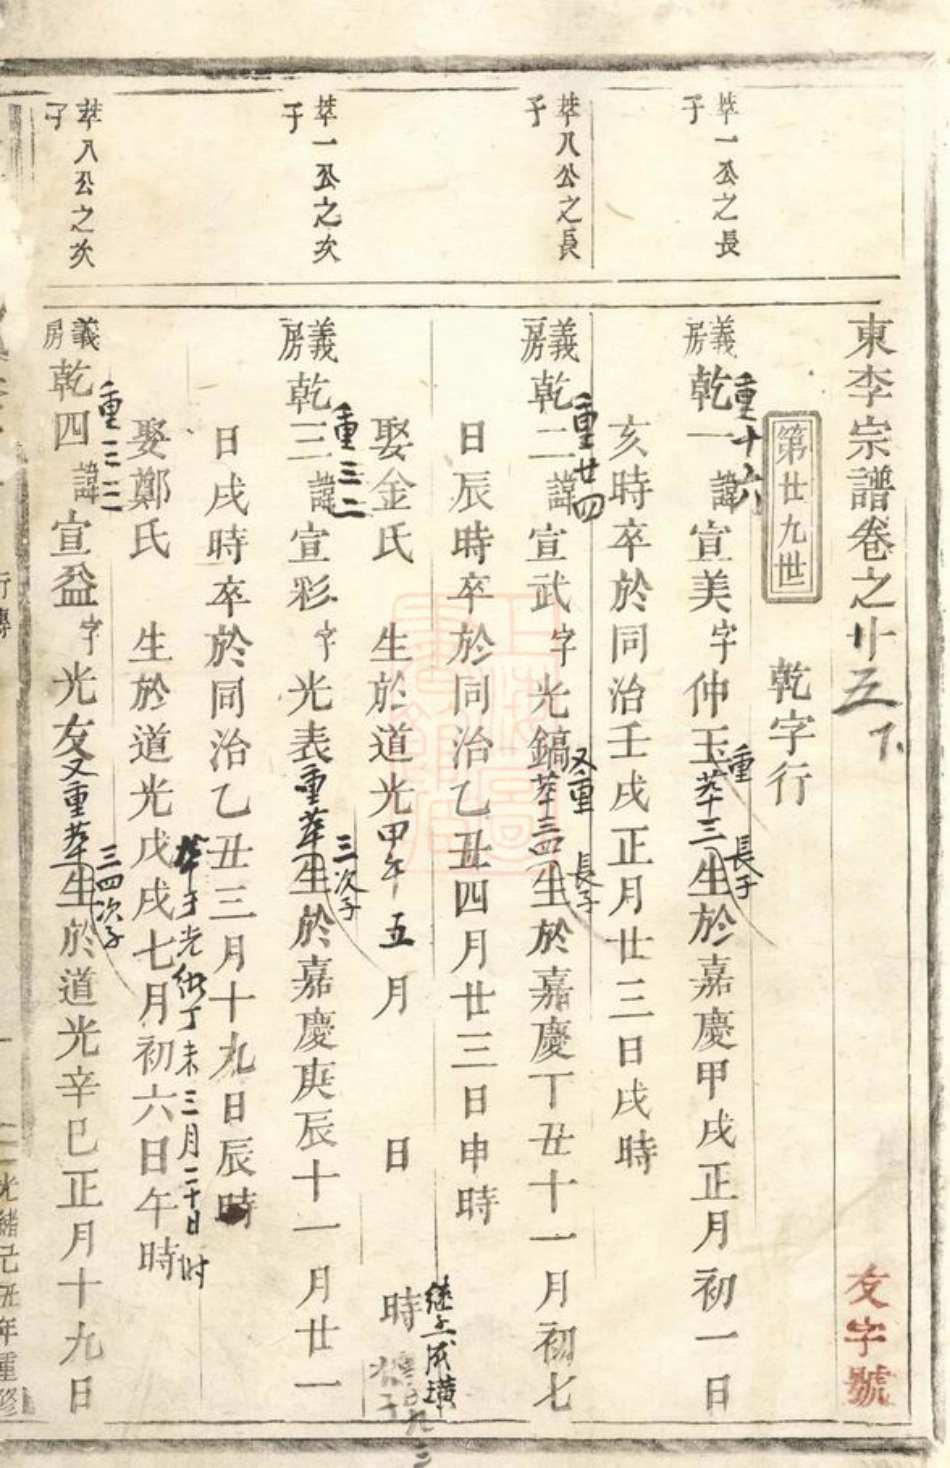 東李宗譜卷之廿五下
友字號
第廿九世
乾字行
萃一公之長子
義房乾一諱宣美字仲玉生於嘉慶甲戌正月初一日
重十六
重萃三長子
亥時卒於同治壬戌正月廿三日戌時
萃八公之長子
義房乾二諱宣武字光鎬生於嘉慶丁丑十一月初七
重廿四
又重萃三四長子
日辰時卒於同治乙丑四月廿三日申時
娶金氏 生於道光甲午五月 日 時
萃一公之次子
義房乾三諱宣彩字光表生於嘉慶庚辰十一月廿一
重三二
重萃三次子
日戌時卒於同治乙丑三月十九日辰時
娶鄭氏 生於道光戊戌七月初六日午時
卒于光緒丁未三月二十日 时
萃八公之次子
義房乾四諱宣益字光友生於道光辛巳正月十九日
重三三
又重萃三四次子
行傳
光緒己丑年重修